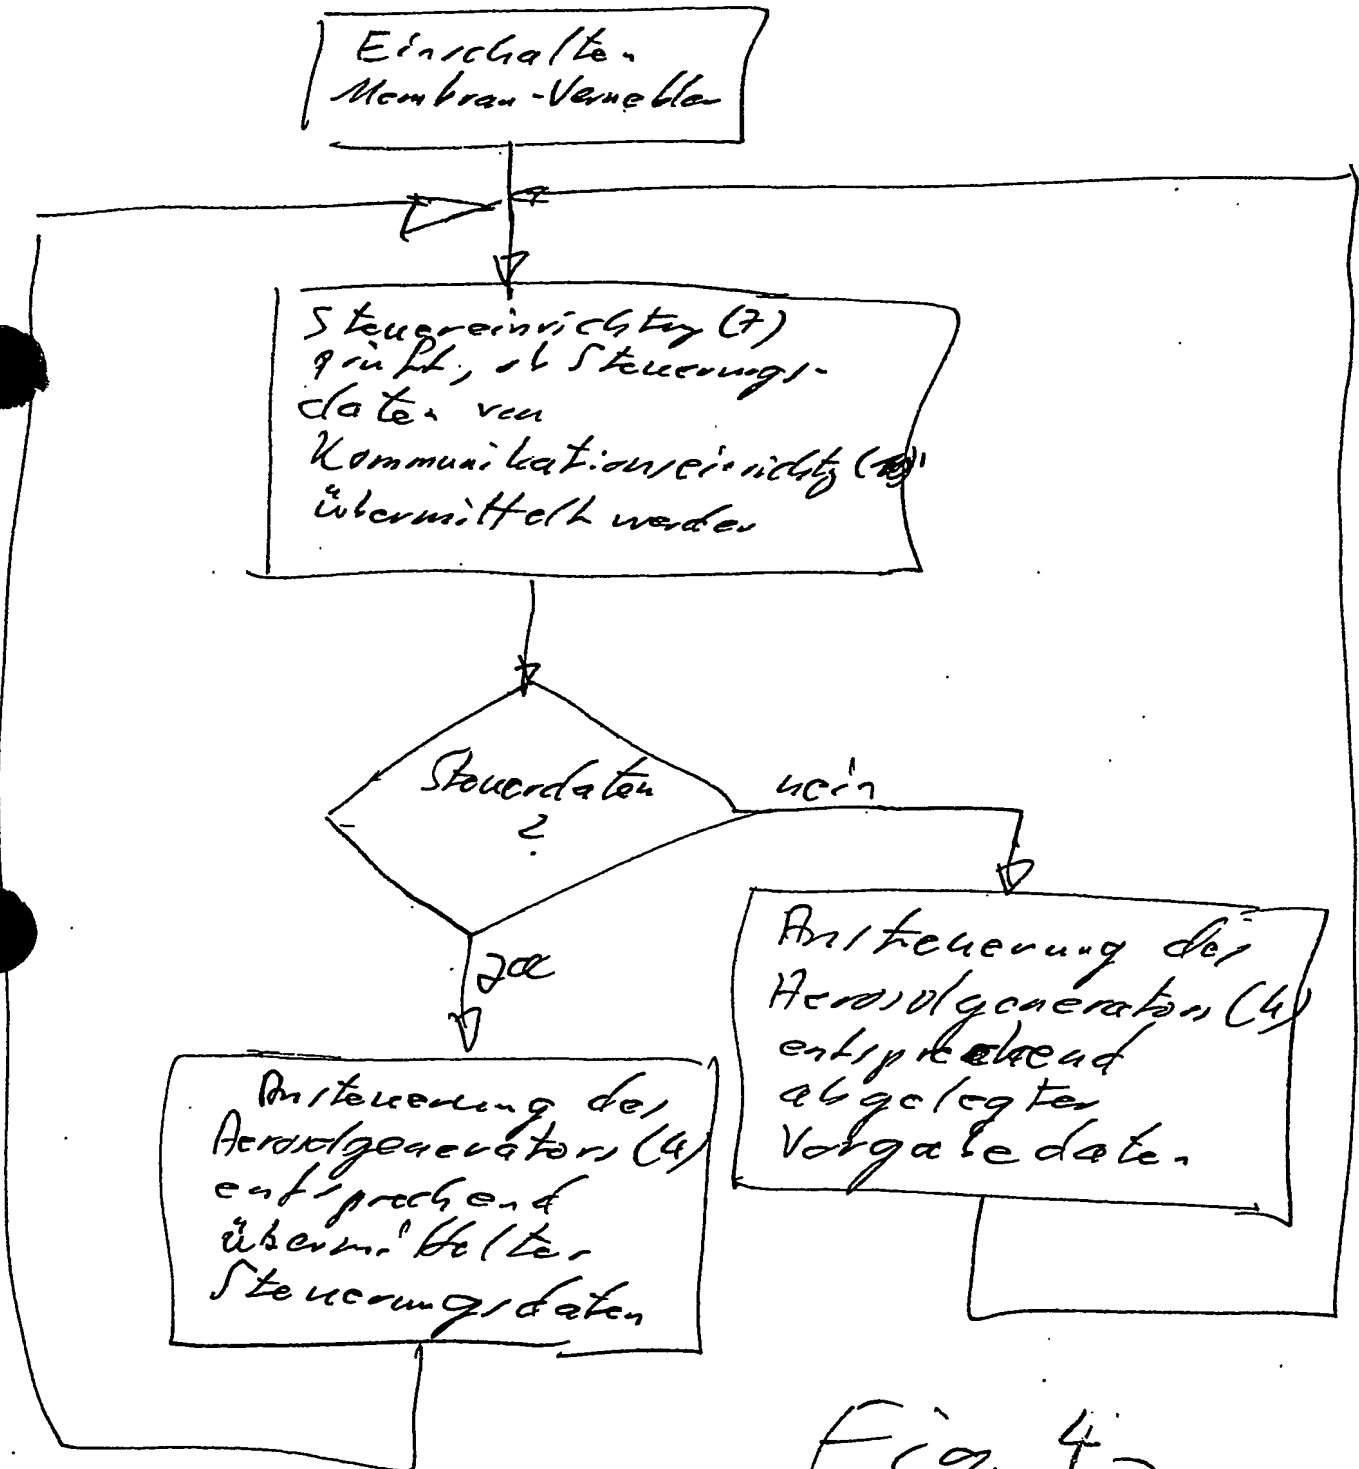 Einschalten
Membran-Vernebler
Steuereinrichtung (7)
prüft, ob Steuerungs-
daten von
Kommunikationseinrichtg
übermittelt werden
Steuerdaten
?
nein
ja
Ansteuerung des
Aerosolgenerators (4)
entsprechend
abgelegter
Vorgabedaten
Ansteuerung des
Aerosolgenerators (4)
entsprechend
übermittelter
Steuerungsdaten
Fig. 4